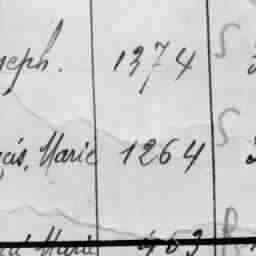 seph. 1374 S
çois, Marie 1264 S
Marie 463